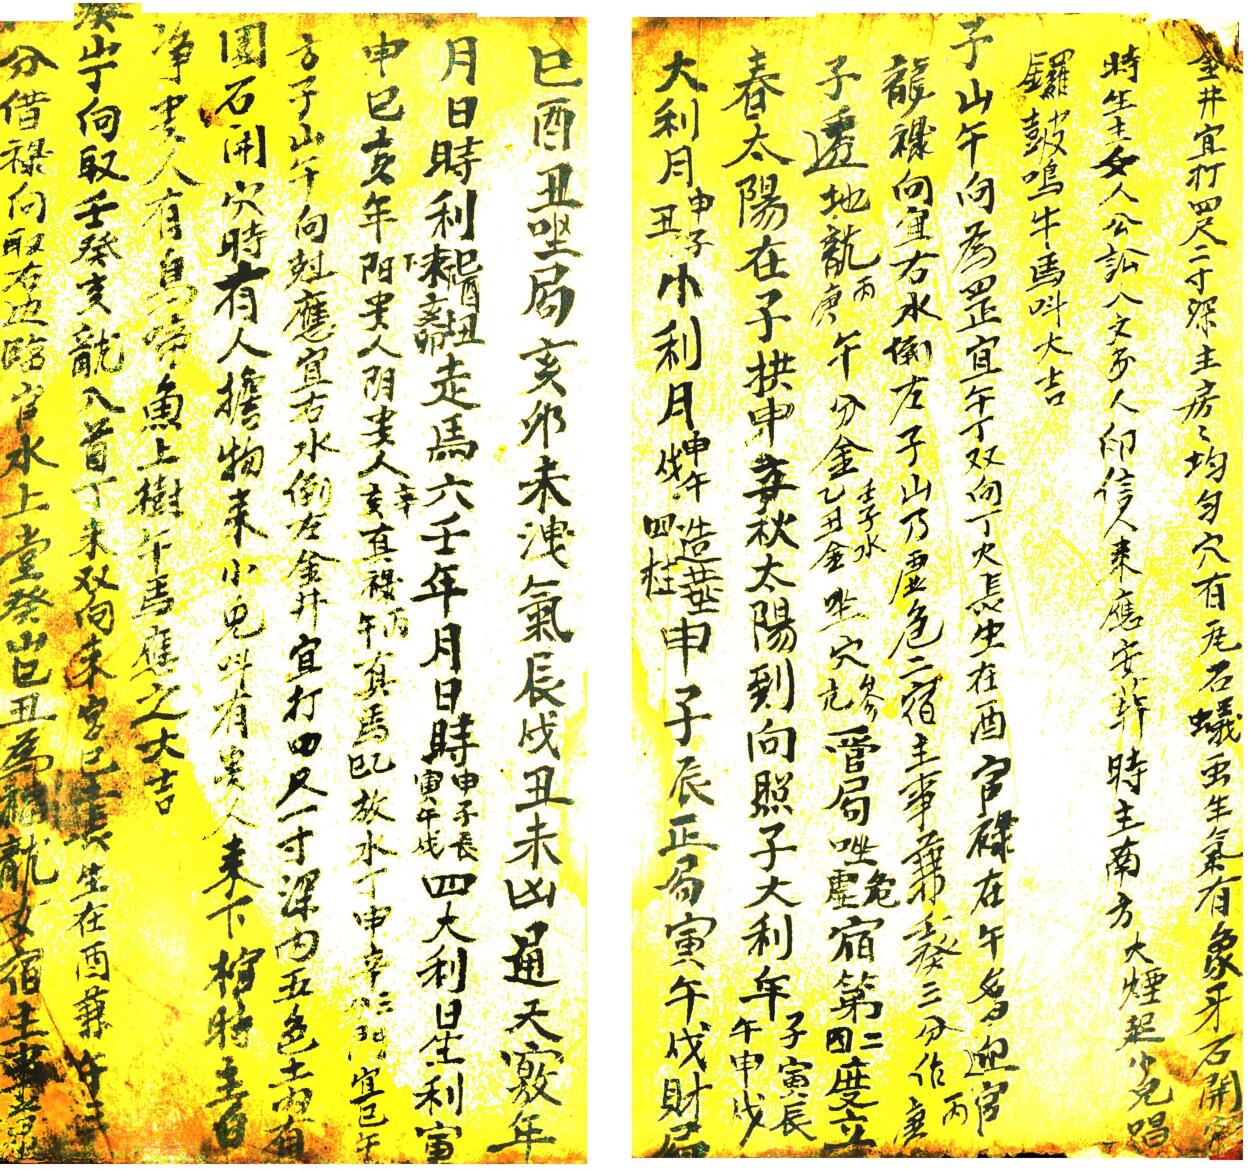 金井宜打四尺二寸深主房々均匀穴有瓦石蟻虫生氣有象牙石開穴
時生主女人公訟八文多人印信人来應安葬時主南方大煙起少兒唱
鑼鼓鳴牛馬叫大吉
子山午向為四正宜午丁双向丁火長生在酉官祿在午多迎官
龍祿向宜右水倒左子山乃虛危二宿主事兼壬癸三分作丙庚
子透地龍丙庚午分金壬子水乙丑金坐穴參亢晉局坐危虛宿第二四度立
春太陽在子拱申辛秋太陽到向照子大利年子寅辰午申戌
大利月申子丑小利月申午戌造葬四柱申子辰正局寅午戌財局
巳酉丑坐局亥卯未洩氣辰戌丑未凶通天竅年
月日時利巳酉丑亥卯未走馬六壬年月日時申子辰寅午戌四大利日生利寅
申巳亥年阳貴人阴貴人辛亥真祿丙午真馬巳放水丁申辛門宜巳午
方子山午向尅應宜右水倒左金井宜打四尺一寸深内五色土有
圓石開穴時有人擔物来小兒叫有貴人来下棺時主百
净貴人有鳥啼魚上樹午馬應之大吉
癸山丁向取壬癸亥龍入首丁未双向未宮巳長生在酉兼午
分借祿向取右边臨官水上堂癸山巳丑為龍女宿主事